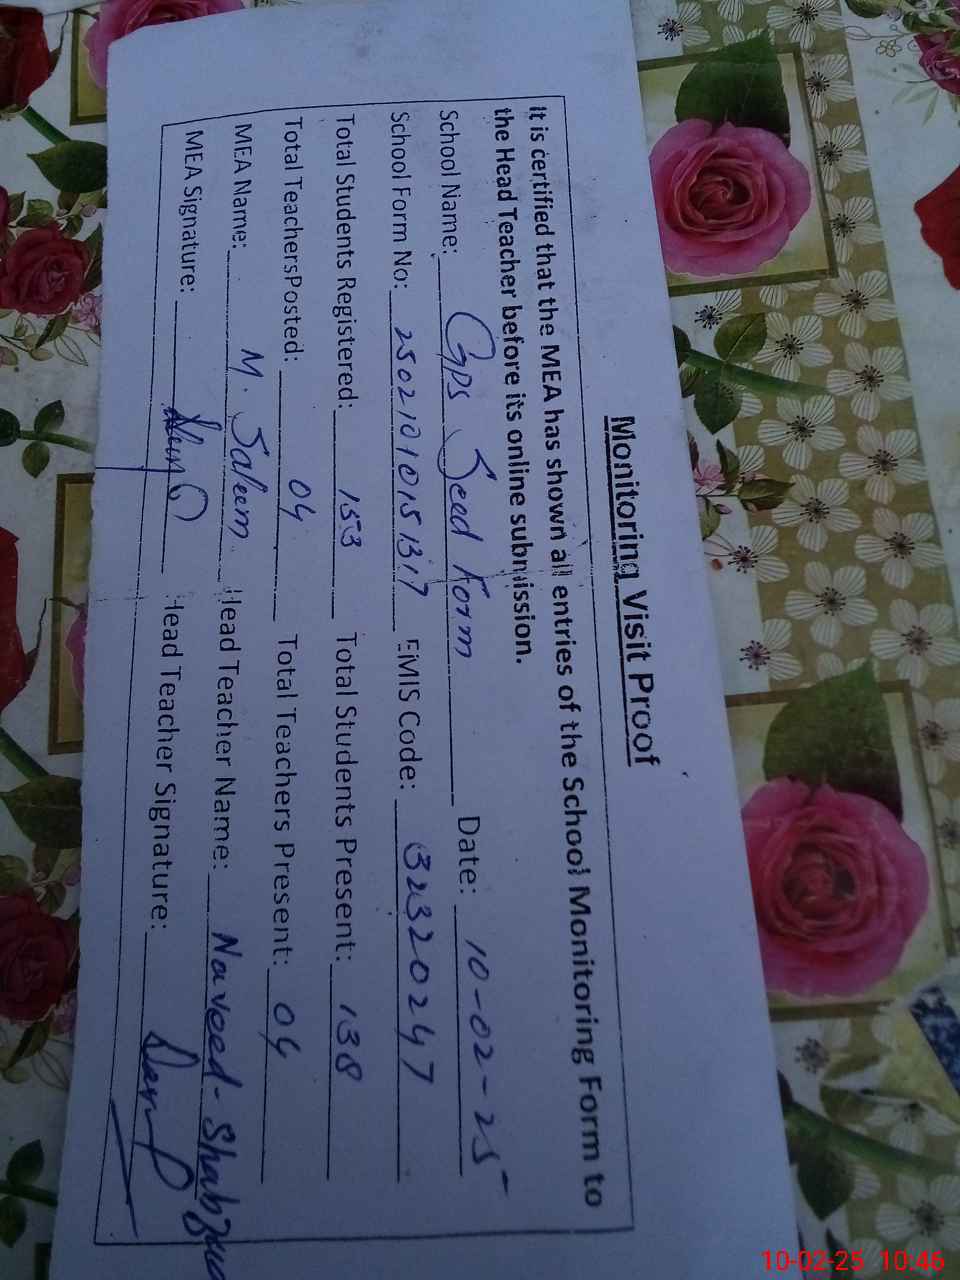 Monitoring Visit Proof
It is certified that the MEA has shown all entries of the School Monitoring Form to
the Head Teacher before its online submission.
School Name: GPS Seed Form Date: 10-02-25
School Form No: 25021010151317 EMIS Code: 32320247
Total Students Registered: 153 Total Students Present: 138
Total TeachersPosted: 04 Total Teachers Present: 04
MEA Name: M. Saleem Head Teacher Name: Naveed-
MEA Signature: Head Teacher Signature:
10-02-25 10:46